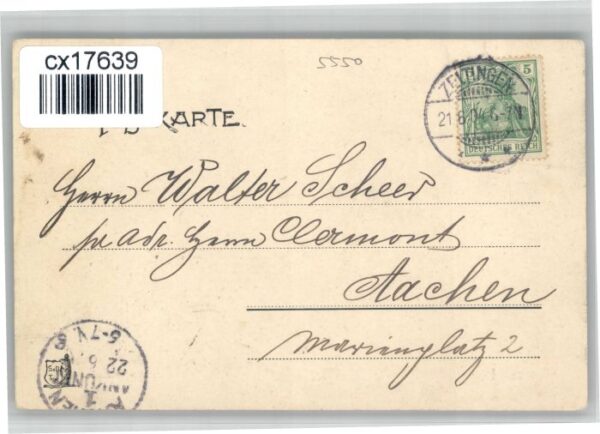 cx17639
5550
POSTKARTE.
ZELTINGEN
21.8.04.6-7N
5
DEUTSCHES REICH
Herrn Walter Scheer
pr. adr. Herrn Clermont
Aachen
Marienplatz 2
AACHEN
1
ANKUNFT
22.8.
6-7V